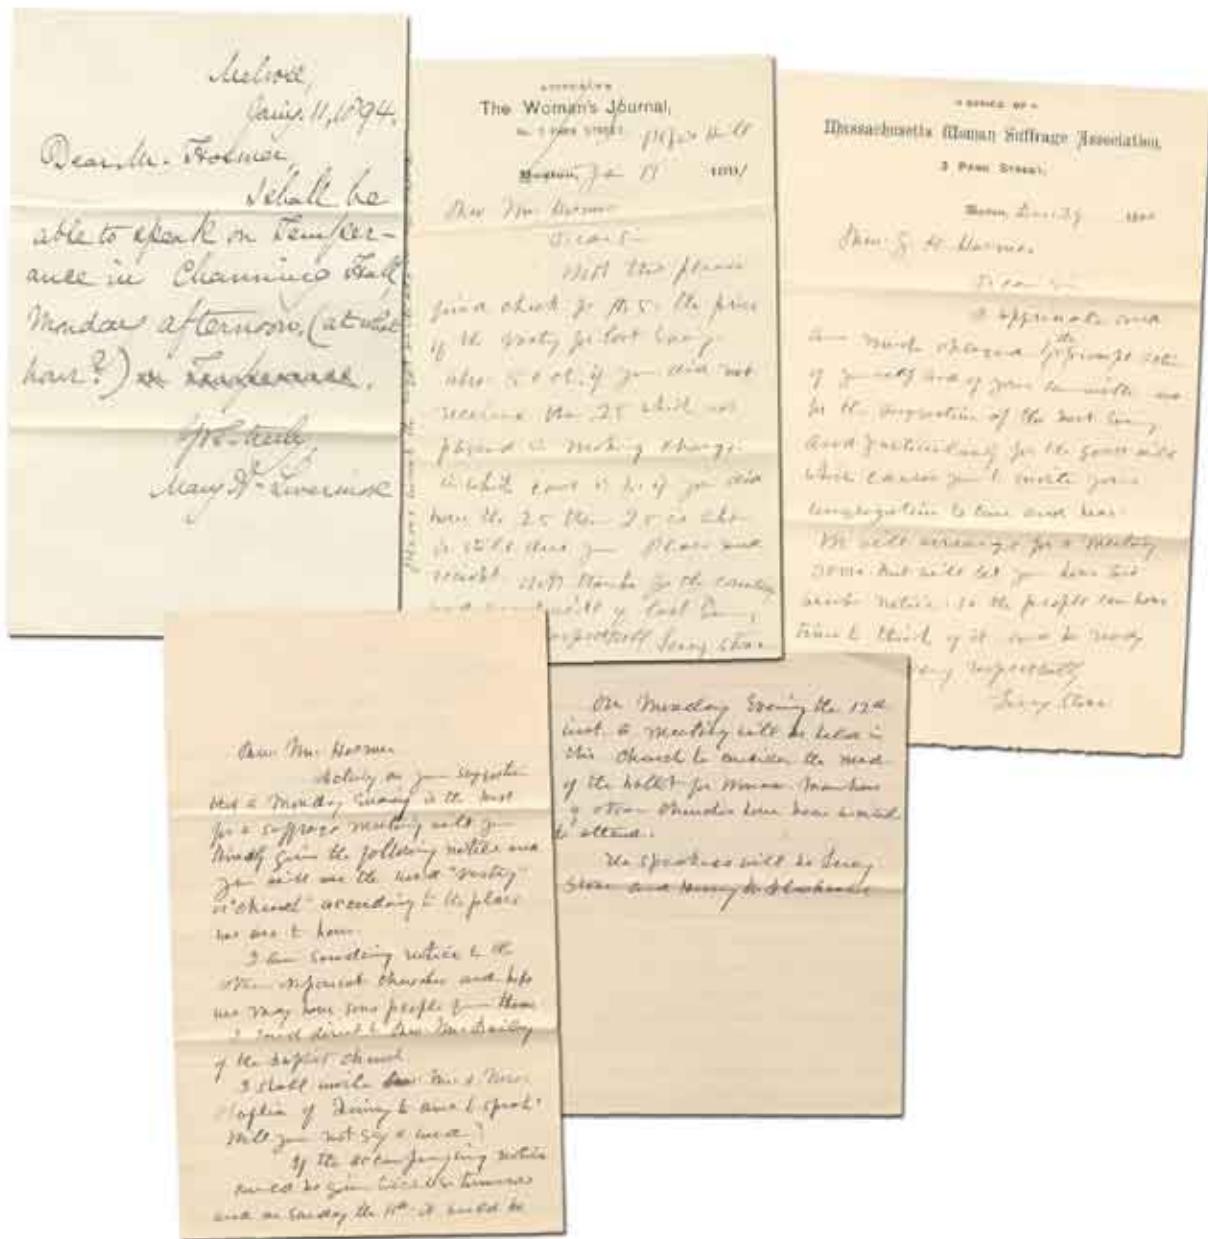 Melrose,
Jany. 11, 1894.
Dear Mr. Hosmer,
I shall be
able to speak on Temper-
ance in Channing Hall
Monday afternoon, (at what
hour?) on Temperance.
Yrs. truly,
Mary A. Livermore
The Woman's Journal,
No. 3 PARK STREET,
Boston, Jan 15 1891
Rev Mr. Hosmer
Dear Sir
With this please
find check for $5. the price
of the vestry for last Eve'g
also 50 cts. if you did not
receive the .25 which was
placed in making change.
in which case if you did
have the 25 then 25 is
is still due you. Please send
receipt. With thanks for the courtesy
and of last Eve,
respectfully Lucy Stone
OFFICE OF
Massachusetts Woman Suffrage Association,
3 PARK STREET,
Boston, Dec. 29
Rev. G. H. Hosmer
Dear Sir
I appreciate and
am much obliged for the prompt action
of yourself and of your committee and
for the suggestion of the best Eve'g
and particularly for the good will
which causes you to invite your
congregation to come and hear.
We will arrange for a meeting
soon but will let you have two
weeks notice so the people can have
time to think of it and be ready
very respectfully
Lucy Stone
Rev. Mr. Hosmer
Acting on your suggestion
that a Monday Evening is the best
for a suffrage meeting will you
kindly give the following notice and
you will use the word "vestry"
or "church" according to the place
we are to have.
I am sending notice to the
other different churches and hope
we may have some people from them
I send direct to Rev. Mr.
of the baptist church
I shall invite Rev. Mr. & Mrs.
of to come & speak.
Will you not say a word?
If the accompanying notice
could be given tomorrow
and on Sunday the 11th it would be
On Monday Evening the 12th
inst. a meeting will be held in
this church to consider the need
of the ballot for women. Members
of other churches have been invited
to attend.
The speakers will be Lucy
Stone and Henry B. Blackwell